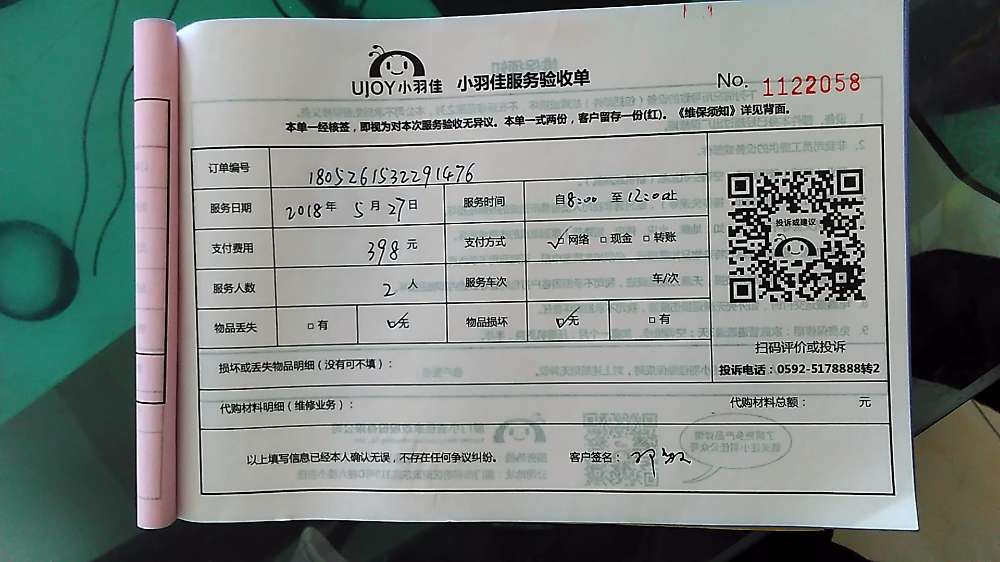 UJOY小羽佳 小羽佳服务验收单 No. 1122058
本单一经核签，即视为对本次服务验收无异议。本单一式两份，客户留存一份(红)。《维保须知》详见背面。
订单编号 1805261532291476
服务日期 2018年 5月27日 服务时间 自8:00 至12:00止
支付费用 398元 支付方式 网络 现金 转账
服务人数 2人 服务车次 车/次
物品丢失 有 无 物品损坏 无 有
投诉或建议
扫码评价或投诉
投诉电话：0592-5178888转2
损坏或丢失物品明细（没有可不填）：
代购材料明细（维修业务）： 代购材料总额： 元
以上填写信息已经本人确认无误，不存在任何争议纠纷。 客户签名：